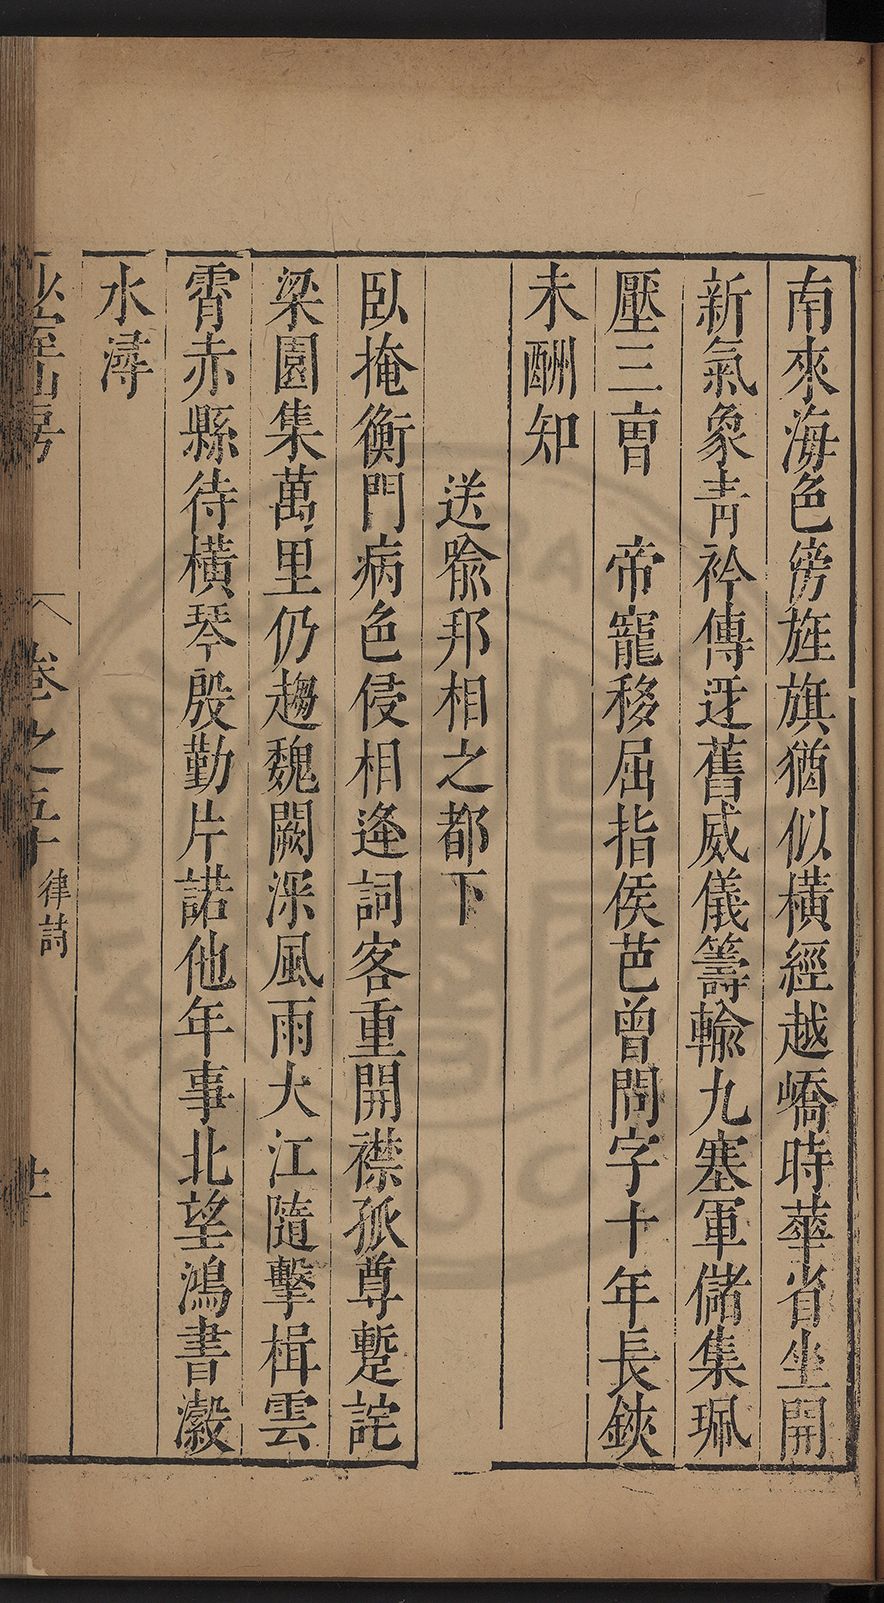 南來海色傍旌旗猶似橫經越嶠時蕐省坐開
新氣象青衿傳迓舊威儀籌輸九塞軍儲集珮
壓三曺　帝寵移屈指侯芭曾問字十年長鋏
未酬知
送喩邦相之都下
臥掩衡門病色侵相逄詞客重開襟孤尊蹔詫
梁園集萬里仍趨魏闕深風雨大江隨擊楫雲
霄赤縣待橫琴殷勤片諾他年事北望鴻書瀫
水潯
卷之五十 律詩